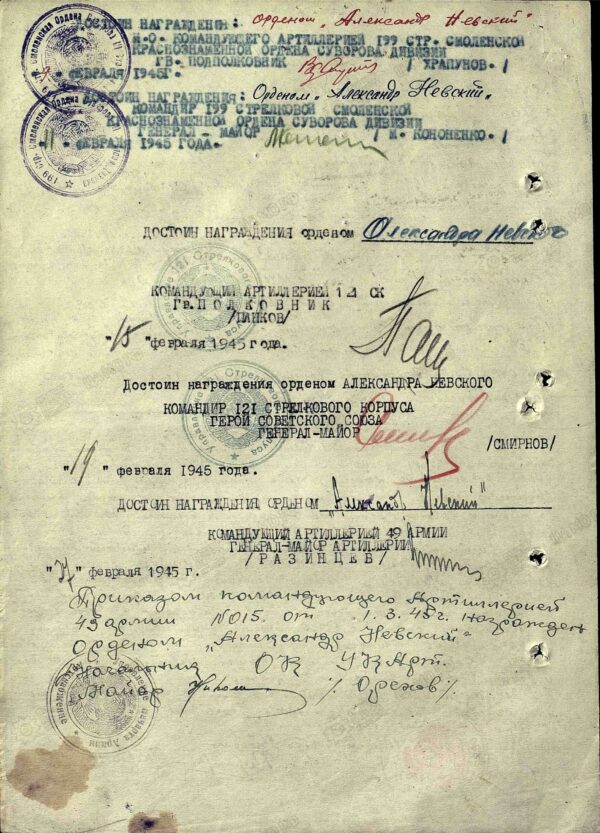 ДОСТОИН НАГРАЖДЕНИЯ: орденом "Александр Невский"
И.О. КОМАНДУЮЩЕГО АРТИЛЛЕРИЕЙ 199 СТР. СМОЛЕНСКОЙ
КРАСНОЗНАМЕННОЙ ОРДЕНА СУВОРОВА ДИВИЗИИ
ГВ. ПОДПОЛКОВНИК / ХРАПУНОВ. /
ФЕВРАЛЯ 1945Г.
ДОСТОИН НАГРАЖДЕНИЯ: Орденом "Александр Невский".
КОМАНДИР 199 СТРЕЛКОВОЙ СМОЛЕНСКОЙ
КРАСНОЗНАМЕННОЙ ОРДЕНА СУВОРОВА ДИВИЗИИ
ГЕНЕРАЛ - МАЙОР / М. КОНОНЕНКО. /
"11" ФЕВРАЛЯ 1945 ГОДА.
ДОСТОИН НАГРАЖДЕНИЯ орденом Александра Невского
КОМАНДУЮЩИЙ АРТИЛЛЕРИЕЙ 121 СК
Гв. ПОЛКОВНИК
/ПАНКОВ/
"15" февраля 1945 года.
Достоин награждения орденом АЛЕКСАНДРА НЕВСКОГО
КОМАНДИР 121 СТРЕЛКОВОГО КОРПУСА
ГЕРОЙ СОВЕТСКОГО СОЮЗА
ГЕНЕРАЛ-МАЙОР
/СМИРНОВ/
"19" февраля 1945 года.
ДОСТОИН НАГРАЖДЕНИЯ ОРДЕНОМ "Александр Невский"
КОМАНДУЮЩИЙ АРТИЛЛЕРИЕЙ 49 АРМИИ
ГЕНЕРАЛ-МАЙОР АРТИЛЛЕРИИ
/РАЗИНЦЕВ/
"27" февраля 1945 г.
Приказом командующего Артиллерией
49 армии №015. от 1.3.45г. награжден
Орденом "Александр Невский"
Начальник ОК УКАрт.
Майор /Орехов/.